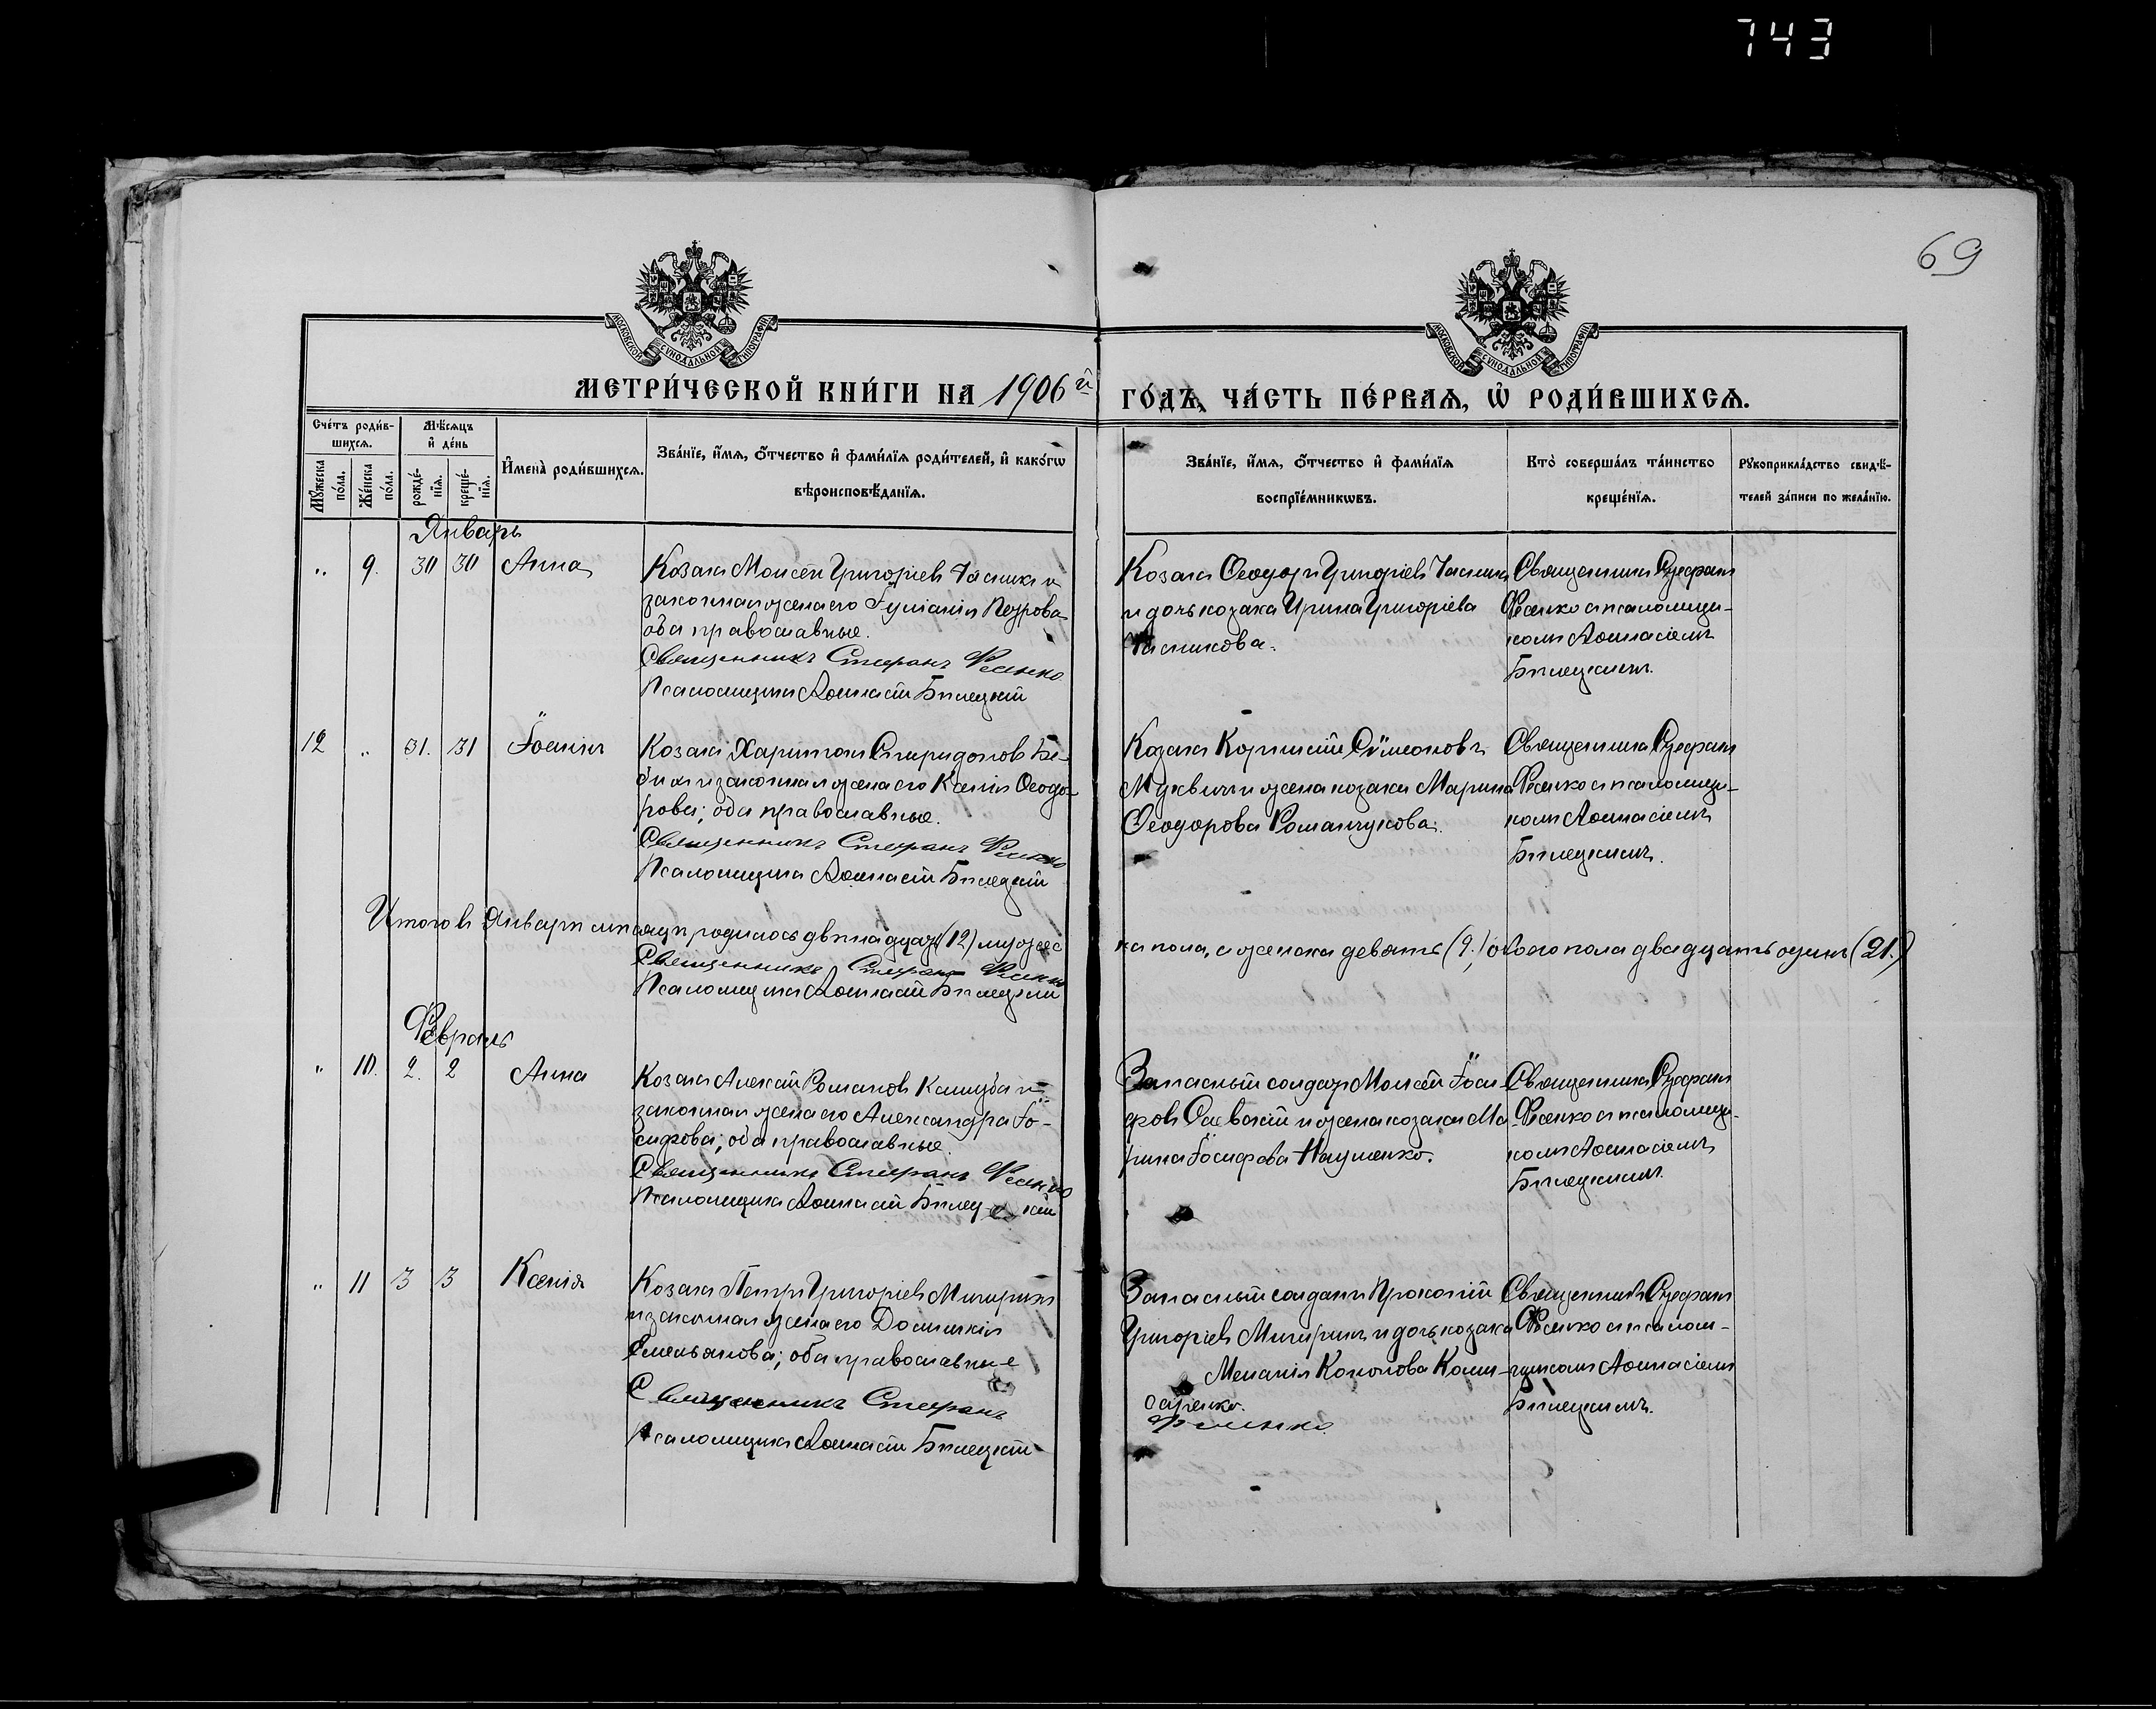 743
69
МОСКОВСКОЙ СУНОДАЛЬНОЙ ТИПОГРАФІИ
МОСКОВСКОЙ СУНОДАЛЬНОЙ ТИПОГРАФІИ
МЕТРИ́ЧЕСКОЙ КНИ́ГИ НА 1906й ГО́ДЪ, ЧА́СТЬ ПЕ́РВАЯ, Ѡ҆ РОДИ́ВШИХСѦ.
Сче́тъ роди́в-
шихсѧ.
Мѣ́сѧцъ
и҆ де́нь
Мꙋ́жеска
по́ла.
Же́нска
по́ла.
рожде́-
нїѧ.
креще́-
нїѧ.
И҆мена̀ роди́вшихсѧ.
Зва́нїе, и҆́мѧ, ѻ҆́тчество и҆ фами́лїѧ роди́телей, и҆ како́гѡ
вѣроисповѣ́данїѧ.
Зва́нїе, и҆́мѧ, ѻ҆́тчество и҆ фами́лїѧ
воспрїе́мникѡвъ.
Кто̀ соверша́лъ та́инство
креще́нїѧ.
Рꙋкоприкла́дство свидѣ́-
телей за́писи по жела́нїю.
Январь
" 9. 30 30 Анна
Козакъ Моисей Григорьевъ и
законная жена его Іуліанія Петрова
оба православные.
Священникъ Стефанъ Фесенко
Псаломщикъ Аѳанасій Билецкій
Козакъ Ѳеодоръ Григорьевъ
и дочь козака Ирина Григоріева
Священникъ Стефанъ
Фесенко съ псаломщи-
комъ Аѳанасіемъ
Билецкимъ.
12 " 31. 31 Іоаннъ
Козакъ Харитонъ Спиридоновъ
и законная жена его Ксенія Ѳеодо-
рова; оба православные.
Священникъ Стефанъ Фесенко
Псаломщикъ Аѳанасій Билецкій
Козакъ Корнилій Сѵмеоновъ
и жена козака Марина
Ѳеодорова Романчукова.
Священникъ Стефанъ
Фесенко съ псаломщи-
комъ Аѳанасіемъ
Билецкимъ.
Итого въ Январѣ мѣсяцѣ родилось двѣнадцать (12) мужес
ка пола, а женска девять (9.) обоего пола двадцать одинъ (21.)
Священникъ Стефанъ Фесенко
Псаломщикъ Аѳанасій Билецкій
Февраль
" 10. 2. 2 Анна
Козакъ Алексій Романовъ Калюба и
законная жена его Александра Іо-
сифова; оба православные.
Священникъ Стефанъ Фесенко
Псаломщикъ Аѳанасій Билецкій
Запасный солдатъ Моисей Іоси-
фовъ и жена козака Ма-
рина Іосифова Науменко.
Священникъ Стефанъ
Фесенко съ псаломщи-
комъ Аѳанасіемъ
Билецкимъ.
" 11 3 3 Ксенія
Козакъ Петръ Григорьевъ Мигиринъ
и законная жена его Домникія
Емельянова; оба православные
Священникъ Стефанъ Фесенко
Псаломщикъ Аѳанасій Билецкій
Запасный солдатъ Прокопій
Григорьевъ Мигиринъ и дочь козака
Меланія Кононова
Священникъ Стефанъ
Фесенко съ псалом-
щикомъ Аѳанасіемъ
Билецкимъ.